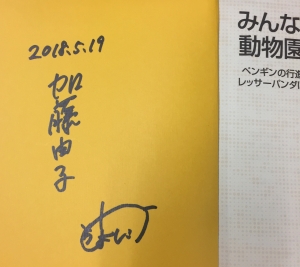 2018.5.19
加藤由子
みんな
動物園
ペンギンの行進
レッサーパンダに